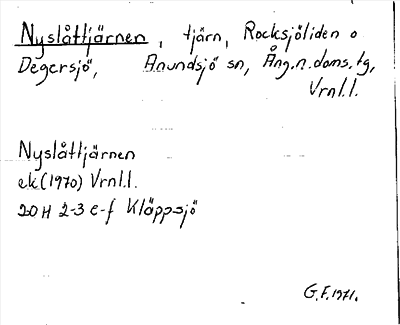 Nyslåttjärnen, tjärn, Rocksjöliden o
Degersjö, Anundsjö sn, Ång.n.doms.tg,
Vrnl.l.
Nyslåttjärnen
ek(1970) Vrnl.l.
20H 2-3 e-f Kläppsjö
G.F. 1971.